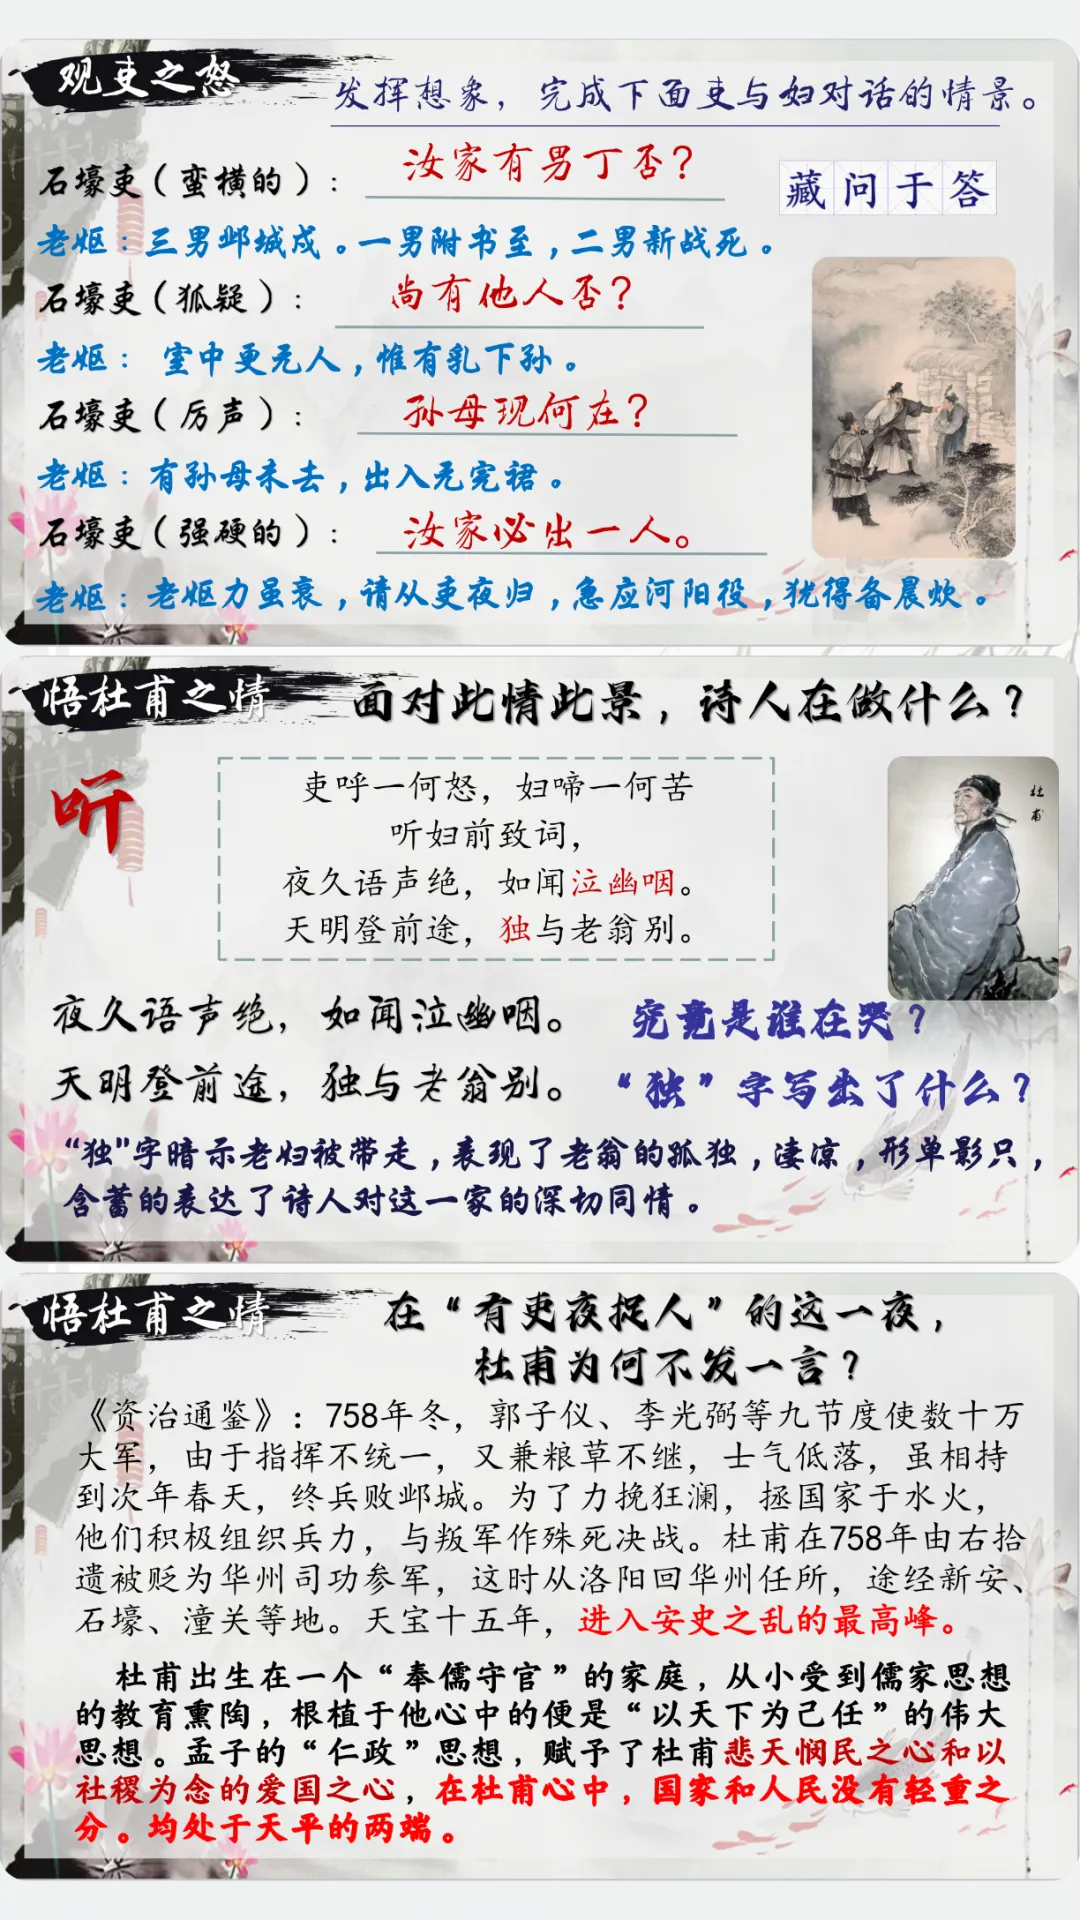 观吏之怒
发挥想象，完成下面吏与妇对话的情景。
石壕吏（蛮横的）：汝家有男丁否？
藏问于答
老妪：三男邺城戍。一男附书至，二男新战死。
石壕吏（狐疑）：尚有他人否？
老妪：室中更无人，惟有乳下孙。
石壕吏（厉声）：孙母现何在？
老妪：有孙母未去，出入无完裙。
石壕吏（强硬的）：汝家必出一人。
老妪：老妪力虽衰，请从吏夜归，急应河阳役，犹得备晨炊。
悟杜甫之情
面对此情此景，诗人在做什么？
听
吏呼一何怒，妇啼一何苦
听妇前致词，
夜久语声绝，如闻泣幽咽。
天明登前途，独与老翁别。
杜甫
夜久语声绝，如闻泣幽咽。 究竟是谁在哭？
天明登前途，独与老翁别。 “独”字写出了什么？
“独"字暗示老妇被带走，表现了老翁的孤独，凄凉，形单影只，
含蓄的表达了诗人对这一家的深切同情。
悟杜甫之情
在“有吏夜捉人”的这一夜，
杜甫为何不发一言？
《资治通鉴》：758年冬，郭子仪、李光弼等九节度使数十万
大军，由于指挥不统一，又兼粮草不继，士气低落，虽相持
到次年春天，终兵败邺城。为了力挽狂澜，拯国家于水火，
他们积极组织兵力，与叛军作殊死决战。杜甫在758年由右拾
遗被贬为华州司功参军，这时从洛阳回华州任所，途经新安、
石壕、潼关等地。天宝十五年，进入安史之乱的最高峰。
杜甫出生在一个“奉儒守官”的家庭，从小受到儒家思想
的教育熏陶，根植于他心中的便是“以天下为己任”的伟大
思想。孟子的“仁政”思想，赋予了杜甫悲天悯民之心和以
社稷为念的爱国之心，在杜甫心中，国家和人民没有轻重之
分。均处于天平的两端。